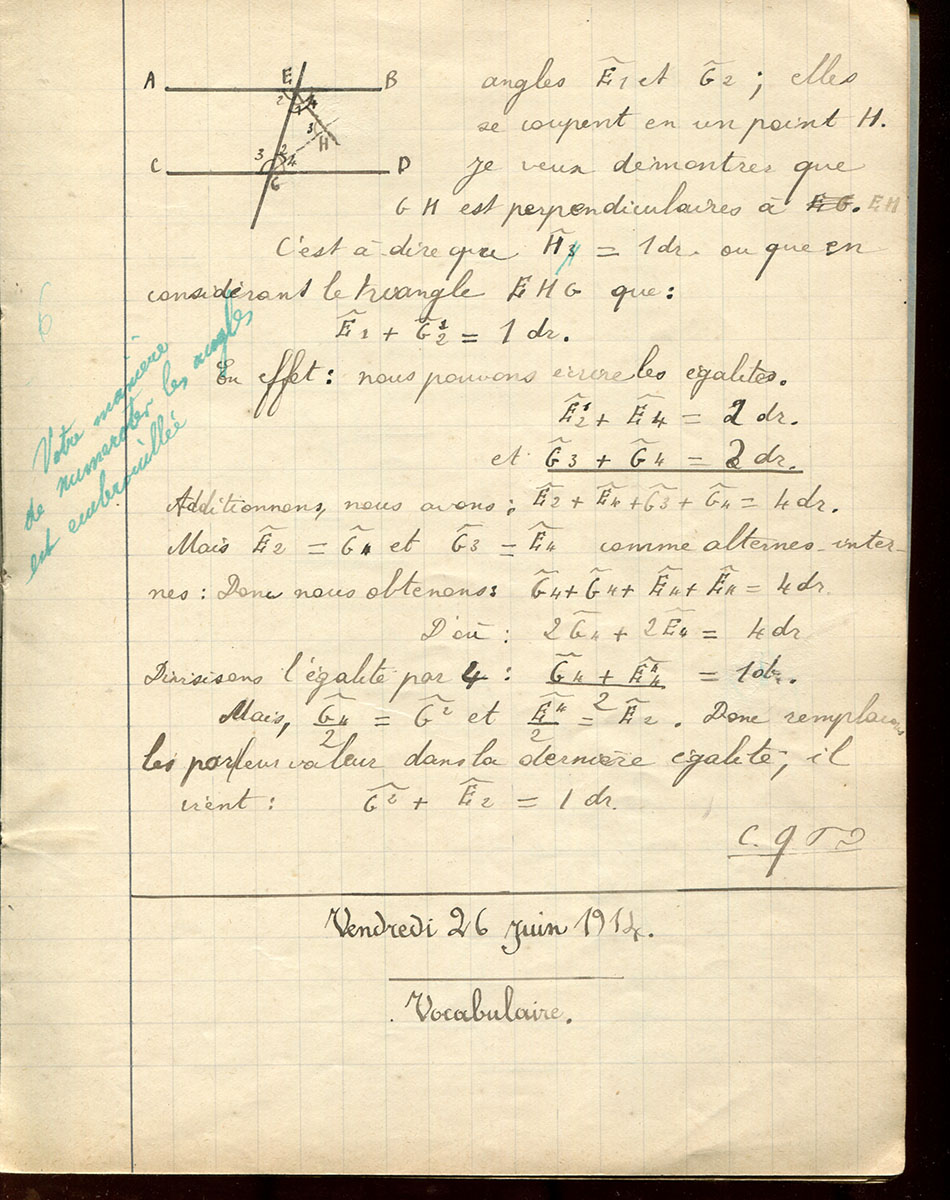 A E B
2 1 4
3 H
C 3 2 4 D
G
angles Ê1 et Ĝ2 ; elles
se coupent en un point H.
Je veux démontrer que
GH est perpendiculaires à EG. EH
C'est à dire que Ĥ3 = 1dr. ou que en
considérant le triangle EHG que :
Ê1 + Ĝ2 = 1 dr.
En effet : nous pouvons écrire les égalités.
Ê2 + Ê4 = 2 dr.
et Ĝ3 + Ĝ4 = 2 dr.
Additionnons, nous avons : Ê2 + Ê4 + Ĝ3 + Ĝ4 = 4 dr.
Mais Ê2 = Ĝ4 et Ĝ3 = Ê4 comme alternes-inter-
nes : Donc nous obtenons : Ĝ4 + Ĝ4 + Ê4 + Ê4 = 4 dr.
D'où : 2Ĝ4 + 2Ê4 = 4 dr
Divisons l'égalité par 4 : Ĝ4 + Ê4 = 1 dr.
2
Mais, Ĝ4 = Ĝ2 et Ê4 = Ê2. Donc remplaçons
2 2
les par leur valeur dans la dernière égalité, il
vient : Ĝ2 + Ê2 = 1 dr.
C. q F D
6
Votre manière
de numéroter les angles
est embrouillée
Vendredi 26 Juin 1914.
Vocabulaire.